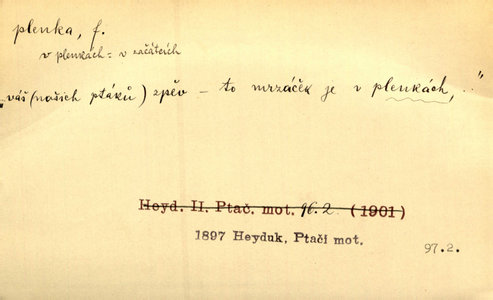 plenka, f.
v plenkách = v začátcích
„váš (našich ptáků) zpěv – to mrzáček je v plenkách, .."
Heyd. II. Ptač. mot. 96.2 (1901)
1897 Heyduk, Ptačí mot.
97.2.